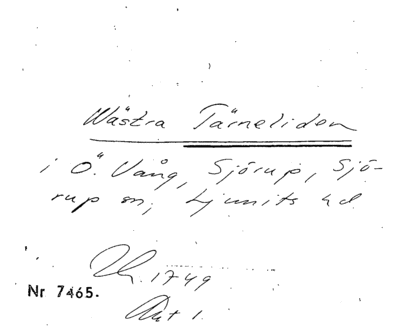 Wästra Tärneliden
i Ö. Vång, Sjörup, Sjö-
rup sn, Ljunits hd
1749
Nr 7465.
Akt 1.